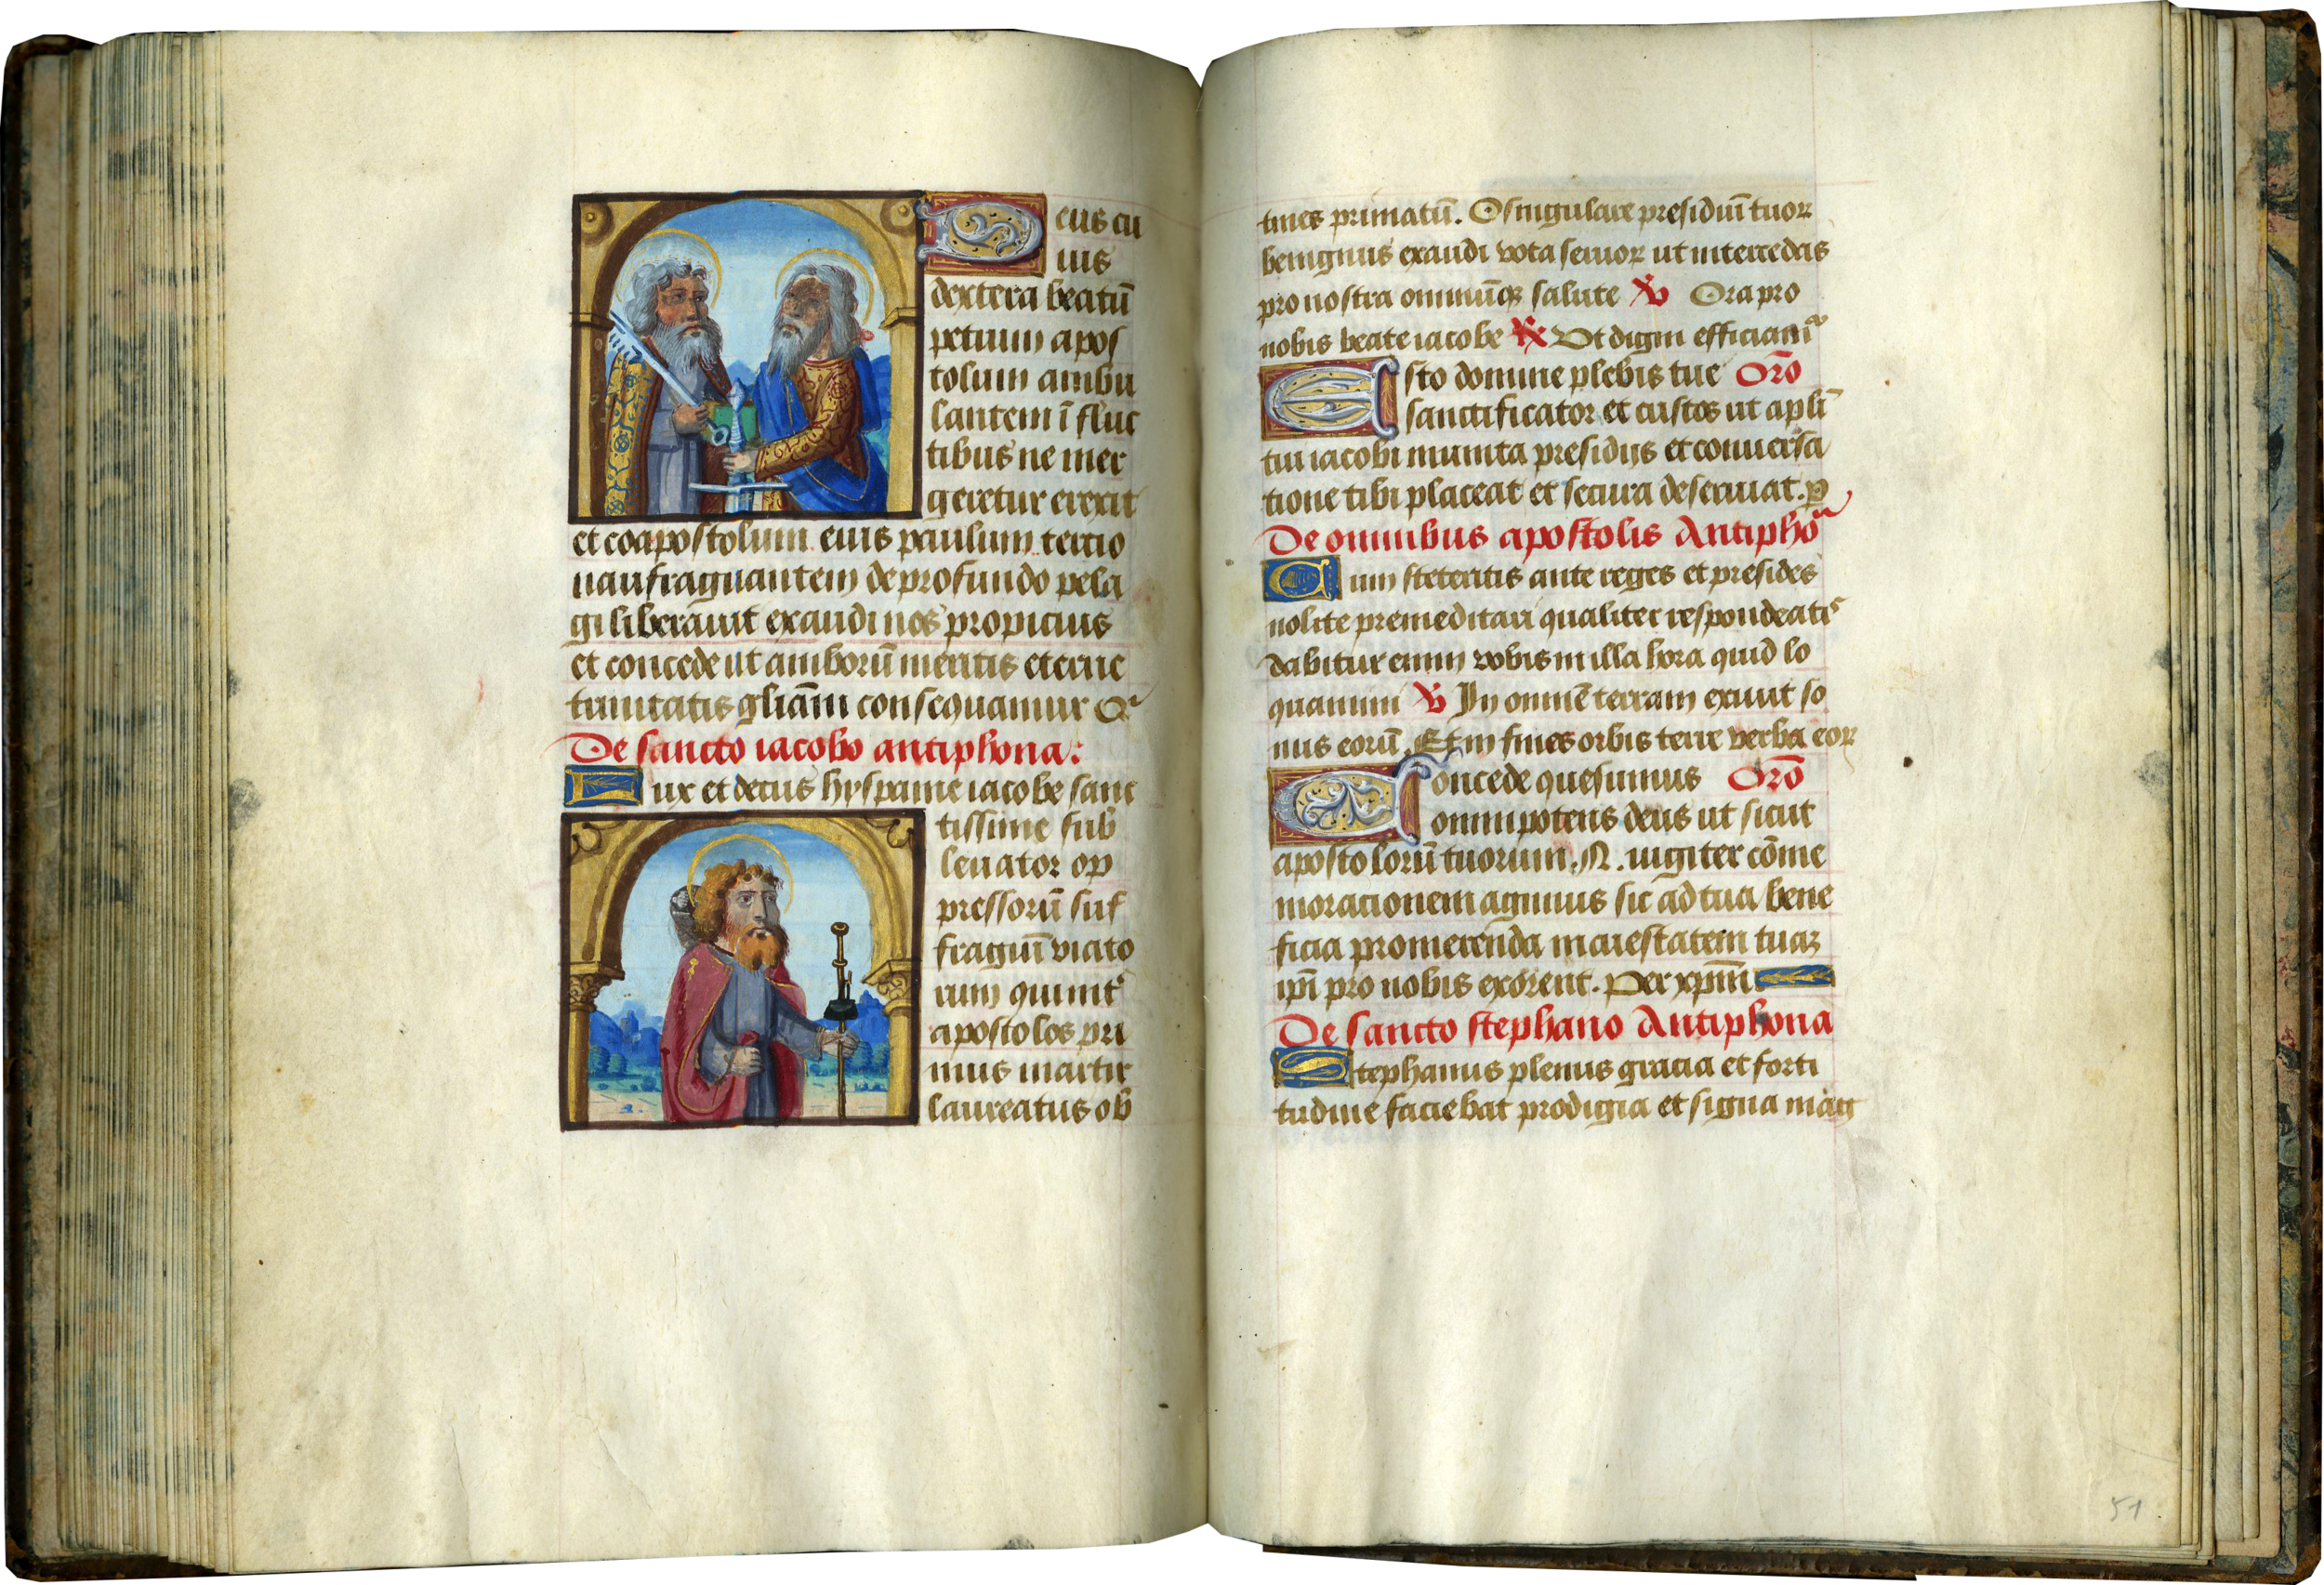 Deus cu
ius
dextera beatū
petrum apos
tolum ambu
lantem ī fluc
tibus ne mer
geretur erexit
et coapostolum eius paulum tercio
naufragantem de profundo pela
gi liberauit exaudi nos propicius
et concede ut amborū meritis eterne
trinitatis gliām consequamur Q
De sancto iacobo antiphona:
Lux et decus hyspanie iacobe sanc
tissime sub
leuator op
pressorū suf
fragiū viato
rum qui int
apostolos pri
mus martir
laureatus ob
tines primatū. O singulare presidiū tuoꝝ
benignus exaudi vota seruoꝝ ut intercedas
pro nostra omniūqꝫ salute ℣ Ora pro
nobis beate iacobe ℟ Vt digni efficiam᷒
Esto domine plebis tue Oro̅
sanctificator et custos ut apl̅i
tui iacobi munita presidijs et conuersa
tione tibi placeat et secura deseruiat. p
De omnibus apostolis Antipho
Cum steteritis ante reges et presides
nolite premeditari qualiter respondeatis
dabitur enim vobis in illa hora quid lo
quamini ℣ In omnē terram exiuit so
nus eorū. Et in fines orbis terre verba eoꝝ
Concede quesumus Oro̅
omnipotens deus ut sicut
apostolorū tuorum .N. iugiter cōme
moracionem agimus sic ad tua bene
ficia promerenda maiestatem tuaꝫ
ipi̅ pro nobis exorent. Per xpm̅
De sancto stephano Antiphona
Stephanus plenus gracia et forti
tudine faciebat prodigia et signa mag
51